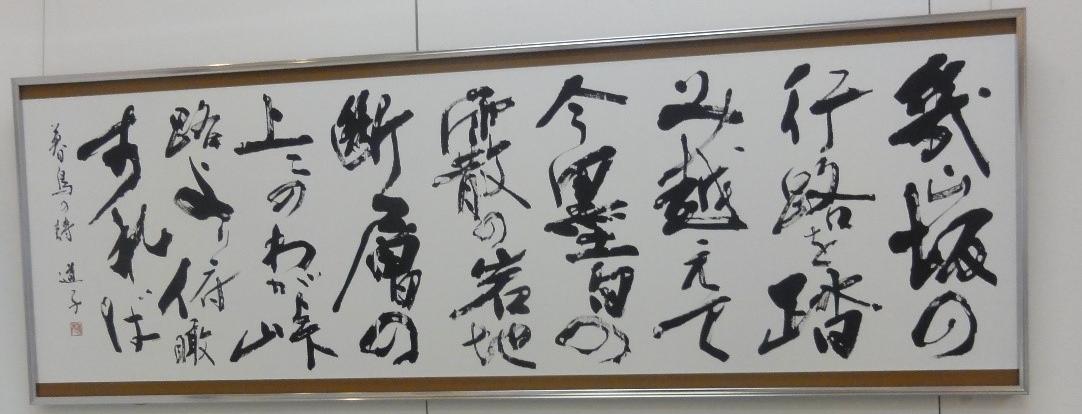 幾山坂の
行路を踏
み越えて
今墨色の
霰散の岩地
断層の
上このわが峠
路より俯瞰
すれば
暮鳥の詩 道子